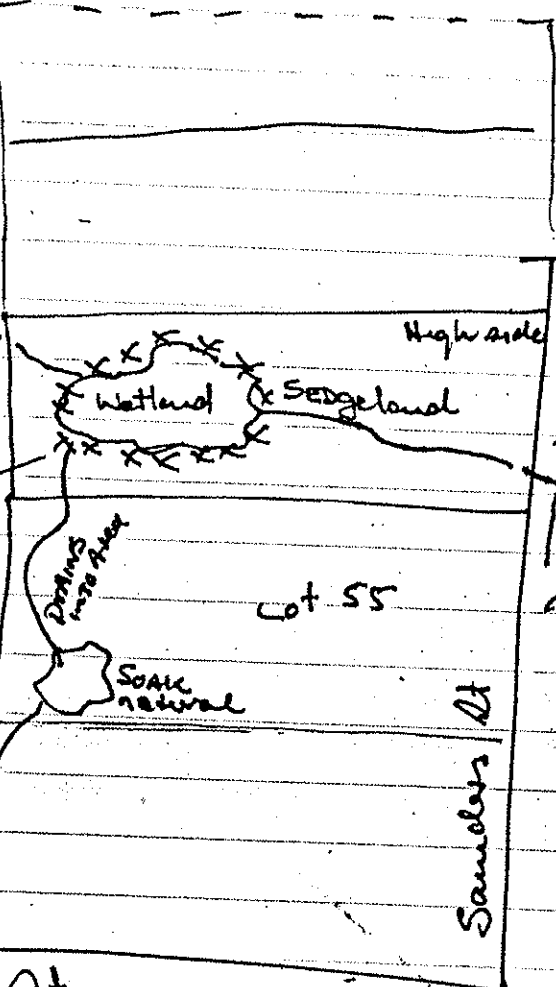 High side
Wetland
SEDgeland
DRAINS
INTO AREA
Lot 55
SOAK
natural
Saunders St